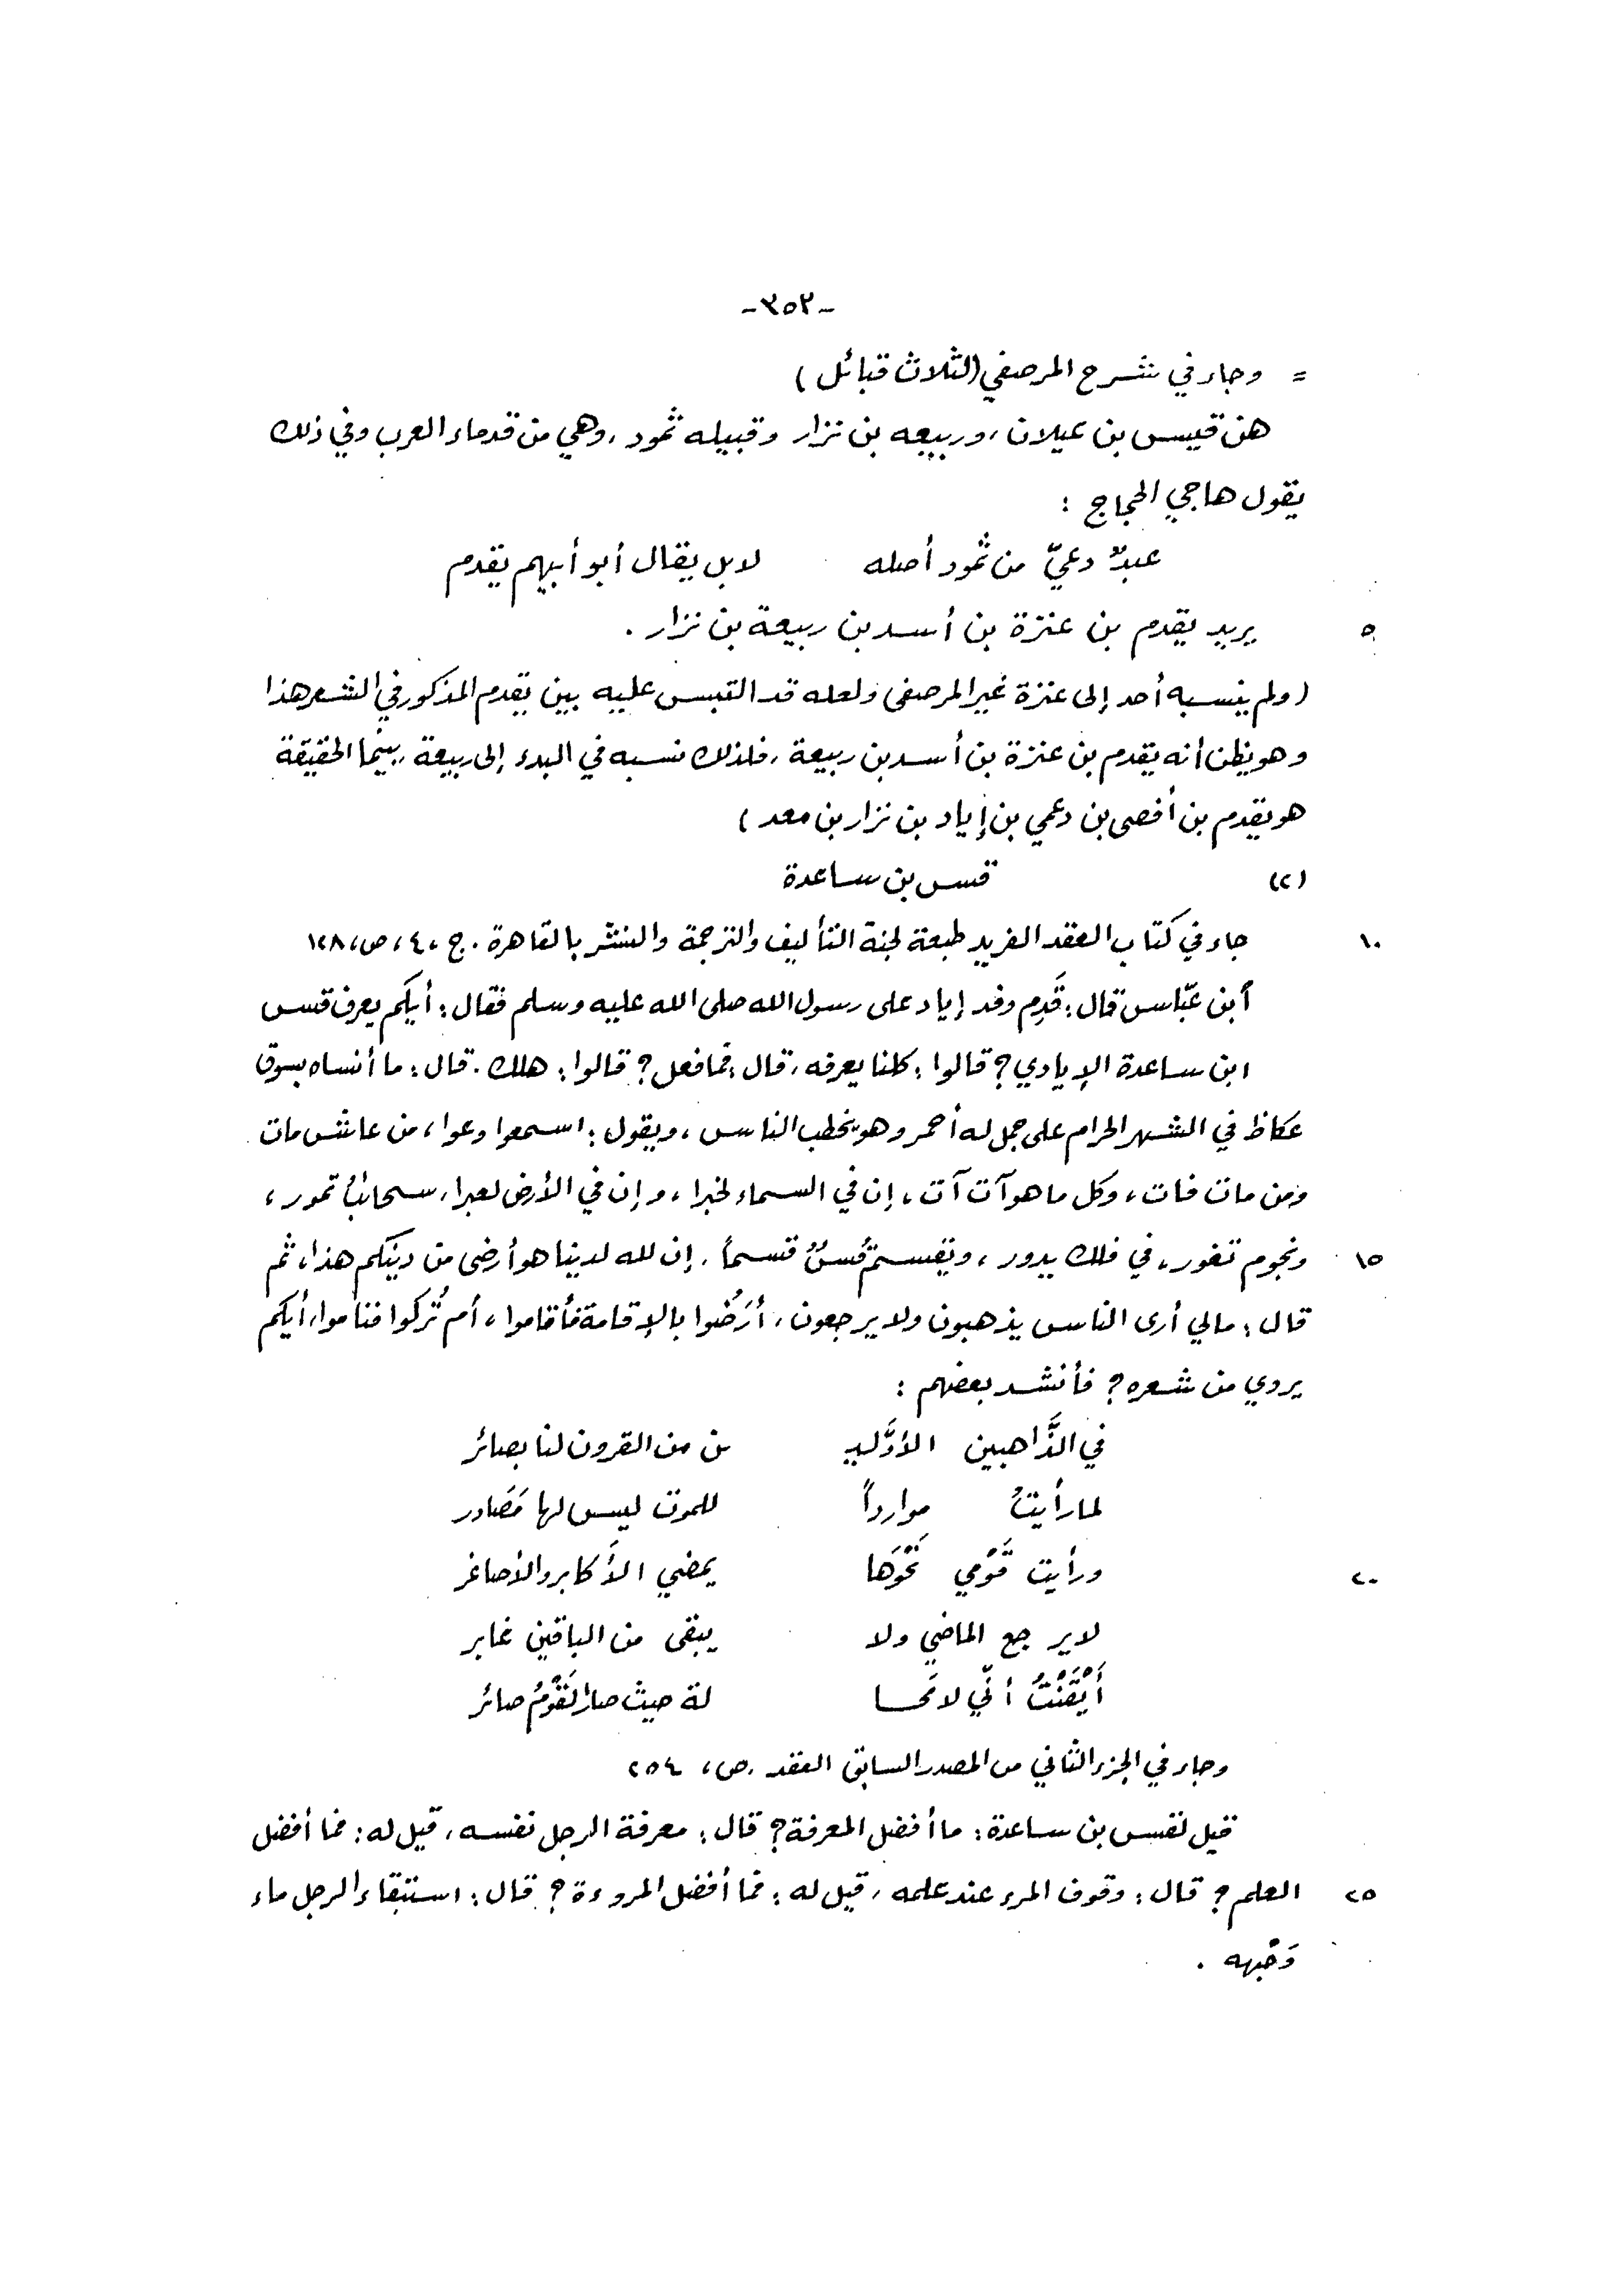 -٣٥٢-
= وجاء في شرح المرصفي (لثلاث قبائل)
هن قيس بن عيلان، وربيعه بن نزار وقبيله ثمود، وهي من قدماء العرب وفي ذلك
يقول هاجي الحجاج :
عبدٌ دعيّ من ثمود أصله لا بل يقال أبو أبيهم يقدم
٥ يريد يقدم بن عنزة بن أسد بن ربيعة بن نزار .
(ولم ينسبه أحد إلى عنزة غير المرصفى ولعله قد التبس عليه بين يقدم المذكور في الشعر هذا
وهو يظن أنه يقدم بن عنزة بن أسد بن ربيعة، فلذلك نسبه في البدء إلى ربيعة، بينما الحقيقة
هو يقدم بن أفصى بن دعمي بن إياد بن نزار بن معد)
(٢) قس بن ساعدة
١٠ جاء في كتاب العقد الفريد طبعة لجنة التأليف والترجمة والنشر بالقاهرة . ج ،٤، ص، ١٢٨
أبن عبّاس قال: قَدِم وفد إياد على رسول الله صلى الله عليه وسلم فقال: أيكم يعرف قس
ابن ساعدة الإيادي؟ قالوا: كلنا يعرفه، قال: فما فعل؟ قالوا: هلك. قال: ما أنساه بسوق
عكاظ في الشهر الحرام على جمل له أحمر وهو يخطب الناس، ويقول: اسمعوا وعوا، من عاش مات
ومن مات فات، وكل ما هو آت آت، إن في السماء لخبرا، وإن في الأرض لعبرا، سحائبُ تمور،
١٥ ونجوم تغور، في فلك يدور، ويقسم قُسٌّ قسماً، إن لله لدينا هو أرضى من دينكم هذا، ثم
قال: مالي أرى الناس يذهبون ولا يرجعون، أرَضُوا بالإقامة فأقاموا، أم تُركوا فناموا، أيكم
يروي من شعره؟ فأنشد بعضهم :
في الذَّاهبين الأوَّليـ ـن من القرون لنا بصائر
لما رأيتُ موارداً للموت ليس لها مَصَادر
٢٠ ورأيت قَوْمي نَحْوَها يمضي الأَكابر والأصاغر
لا يرجع الماضي ولا يبقى من الباقين غابر
أَيْقَنْتُ أنّي لا مَحـا لة حيث صار لقَوْمُ صائر
وجاء في الجزء الثاني من المصدر السابق العقد . ص، ٢٥٤
قيل لقس بن ساعدة: ما أفضل المعرفة؟ قال: معرفة الرجل نفسه، قيل له: فما أفضل
٢٥ العلم؟ قال: وقوف المرء عند علمه، قيل له: فما أفضل المروءة؟ قال: استبقاء الرجل ماء
وَجْهه .